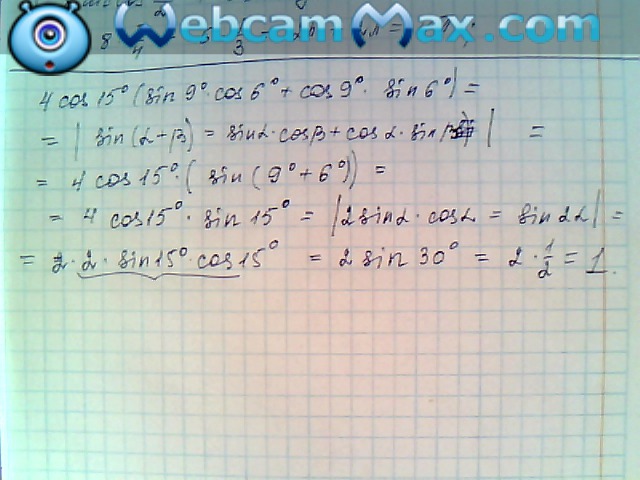 WebcamMax.com
4 cos 15° (sin 9° · cos 6° + cos 9° · sin 6°) =
= | sin (α + β) = sin α · cos β + cos α · sin β | =
= 4 cos 15° · ( sin ( 9° + 6° )) =
= 4 cos 15° · sin 15° = | 2 sin α · cos α = sin 2α | =
= 2 · 2 · sin 15° · cos 15° = 2 sin 30° = 2 · 1/2 = 1.